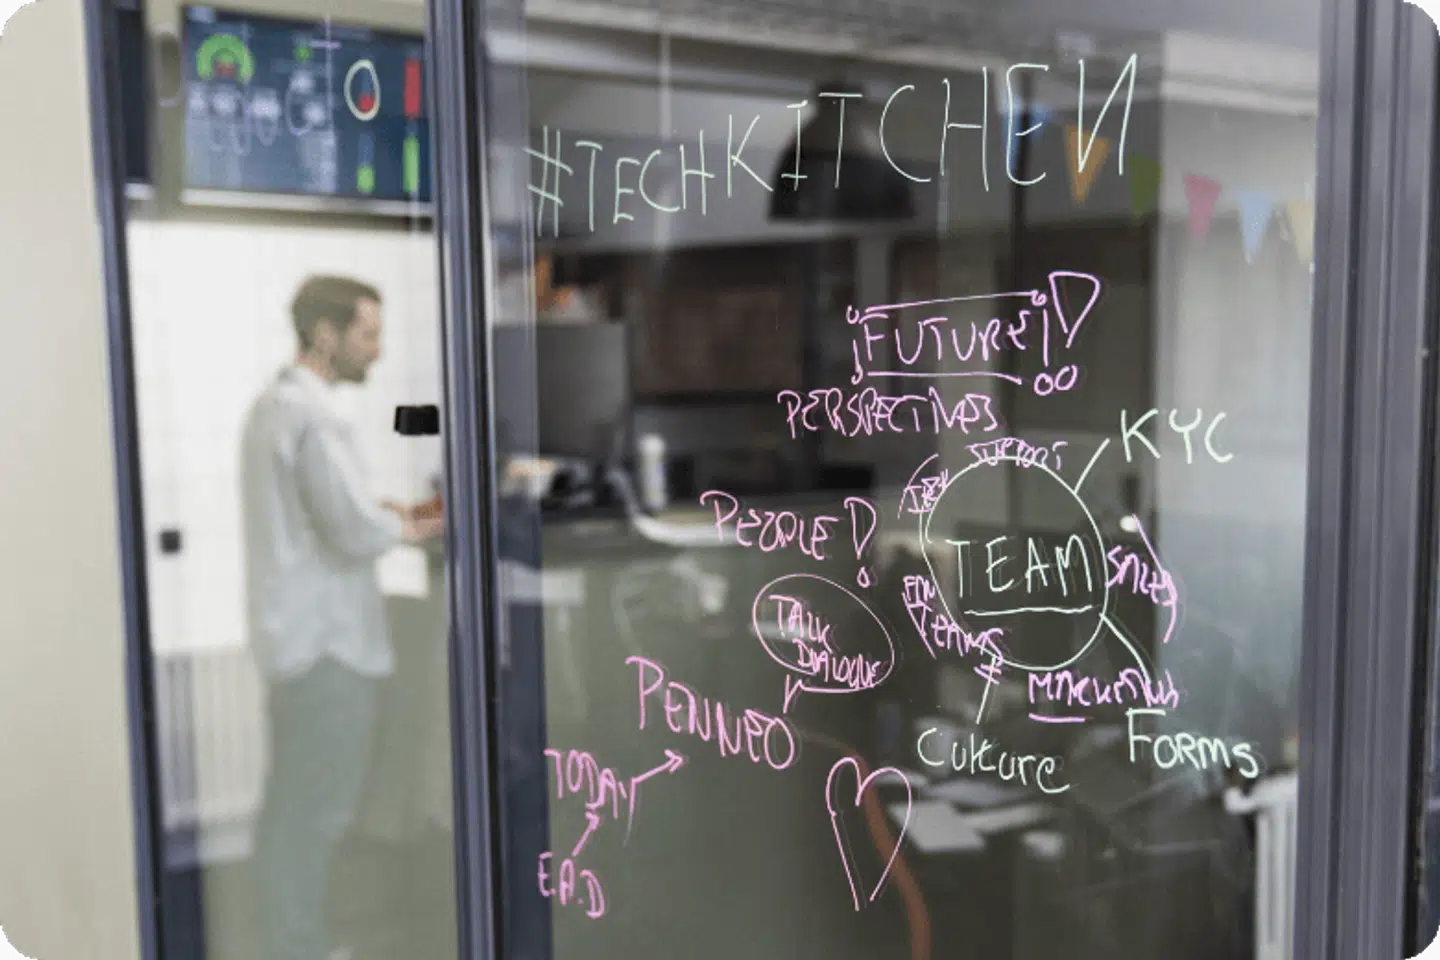 #TECHKITCHEN
FUTURE!
PERSPECTIVES
SUPPORT
KYC
PEOPLE!
TEAM
SALES
FIN
TEAMS
TALK
DIALOGUE
MARKETING
PENNEO
FORMS
Culture
TODAY
E.A.D